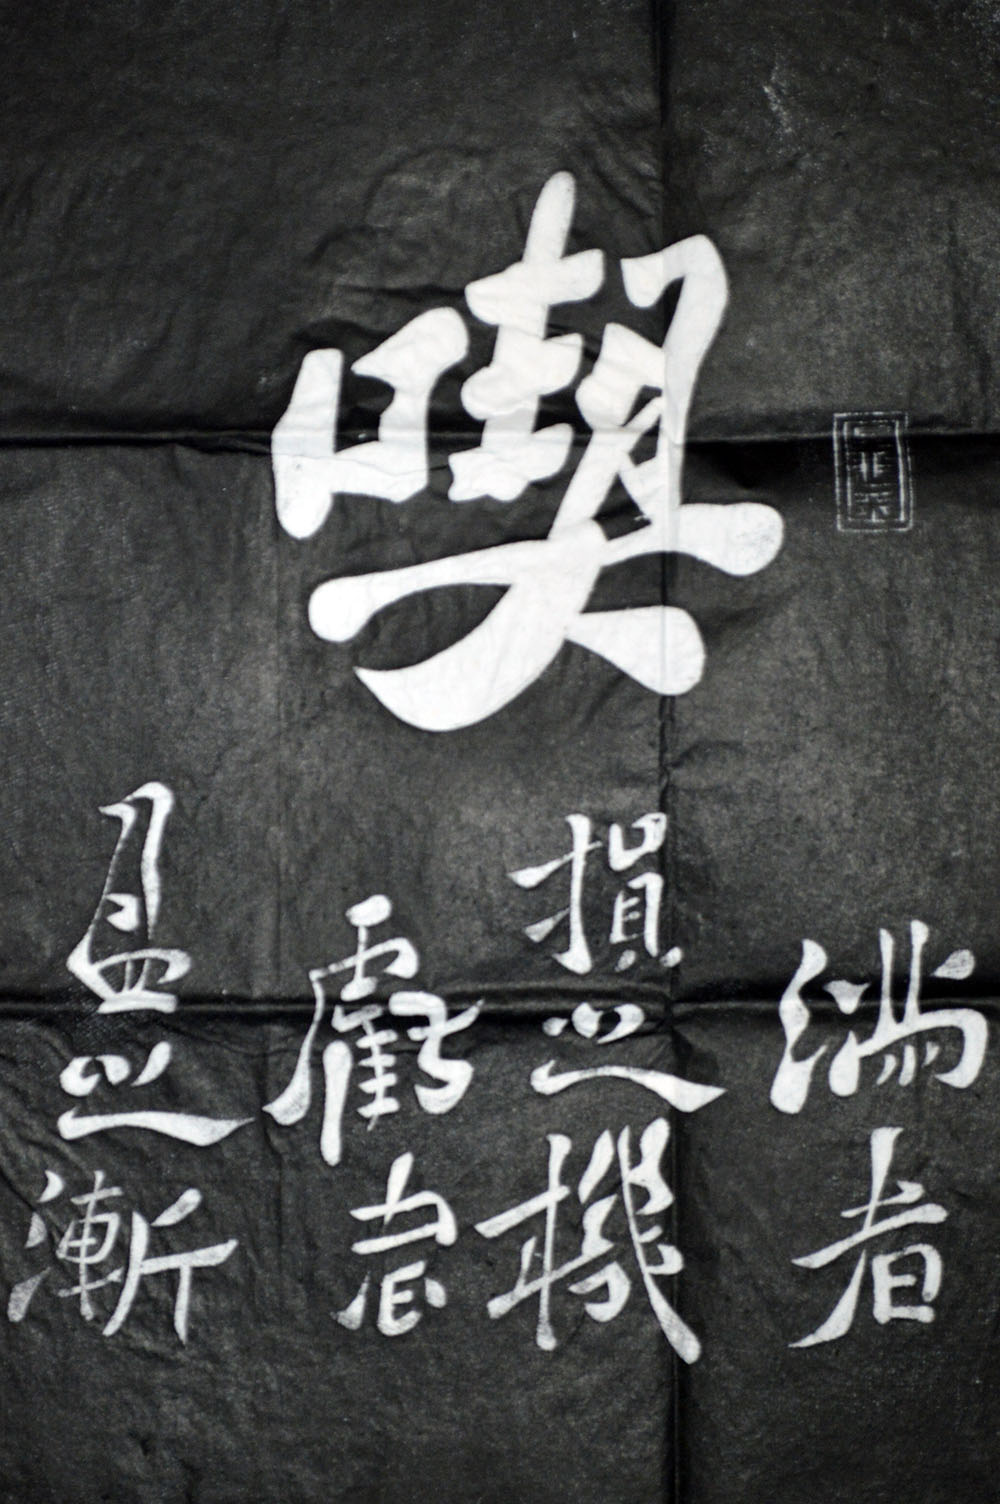 喫
滿者
損之機
虧者
盈之漸